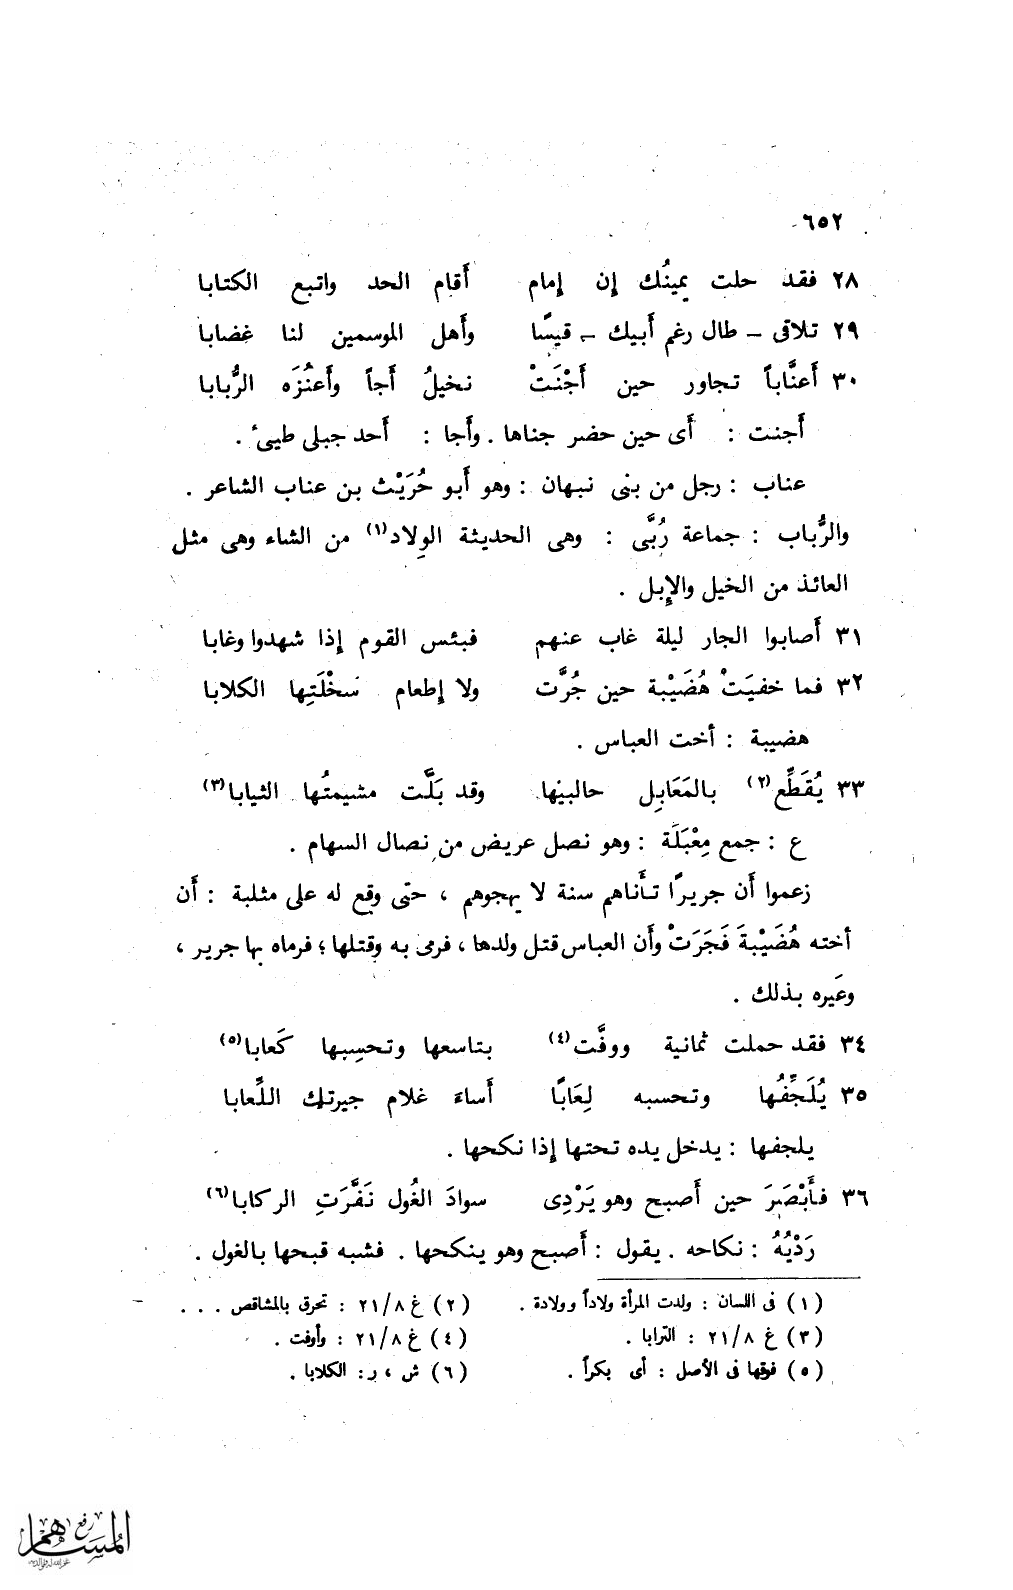 ٦٥٢
٢٨ فقد حلت يمينُك إن إمام أَقام الحد واتبع الكتابا
٢٩ تلاقى – طال رغم أَبيك – قيسًا وأَهل الموسمين لنا غضابا
٣٠ أَعنَّاباً تجاور حين أَجْنَتْ نخيلُ أَجاً وأَعنُزَه الرُّبابا
أَجنت : أَى حين حضر جناها . وأَجا : أَحد جبلى طيىء .
عناب : رجل من بنى نبهان : وهو أَبو حُرَيْث بن عناب الشاعر .
والرُّباب : جماعة رُبَّى : وهى الحديثة الولاد(١) من الشاء وهى مثل
العائذ من الخيل والإِبل .
٣١ أَصابوا الجار ليلة غاب عنهم فبئس القوم إذا شهدوا وغابا
٣٢ فما خفيَتْ هُضَيْبة حين جُرَّت ولا إطعام سخْلَتِها الكلابا
هضيبة : أخت العباس .
٣٣ يُقَطِّع(٢) بالمَعَابِل حالبيْها وقد بَلَّت مشيمتُها الثيابا(٣)
ع : جمع مِعْبَلَة : وهو نصل عريض من نصال السهام .
زعموا أَن جريرًا تأَناهم سنة لا يهجوهم ، حتى وقع له على مثلبة : أَن
أخته هُضَيْبةَ فَجَرَتْ وأَن العباس قتل ولدها ، فرمى به وقتلها ؛ فرماه بها جرير ،
وعَيره بذلك .
٣٤ فقد حملت ثمانية ووفَّت(٤) بتاسعها وتحسِبها كَعابا(٥)
٣٥ يُلَجِّفُها وتحسبه لِعَابًا أَساءَ غلام جيرتك اللِّعابا
يلجفها : يدخل يده تحتها إذا نكحها .
٣٦ فأَبْصَرَ حين أَصبح وهو يَرْدِى سوادَ الغُول نَفَّرَتِ الركابا(٦)
رَدْيُهُ : نكاحه . يقول : أَصبح وهو ينكحها . فشبه قبحها بالغول .
(١) فى اللسان : ولدت المرأة ولاداً وولادة . (٢) غ ٢١/٨ : تحرق بالمشاقص . . .
(٣) غ ٢١/٨ : الترابا . (٤) غ ٢١/٨ : وأوفت .
(٥) فوقها فى الأصل : أى بكراً . (٦) ش ، ر : الكلابا .